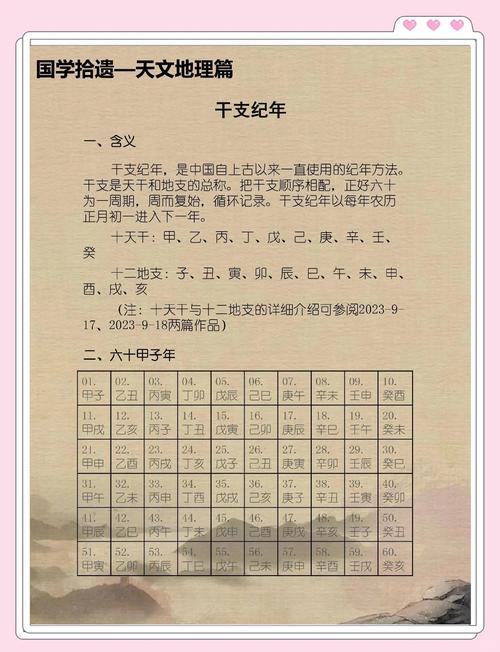 国学拾遗—天文地理篇
干支纪年
一、含义
干支纪年，是中国自上古以来一直使用的纪年方法。
干支是天干和地支的总称。把干支顺序相配，正好六十
为一周期，周而复始，循环记录。干支纪年以每年农历
正月初一进入下一年。
十天干：甲、乙、丙、丁、戊、己、庚、辛、壬、
癸
十二地支：子、丑、寅、卯、辰、巳、午、未、申、
酉、戌、亥
（注：十天干与十二地支的详细介绍可参阅2023-9-
17、2023-9-18两篇作品）
二、六十甲子年
01. 02. 03. 04. 05. 06. 07. 08. 09. 10.
甲子 乙丑 丙寅 丁卯 戊辰 己巳 庚午 辛未 壬申 癸酉
11. 12. 13. 14. 15. 16. 17. 18. 19. 20.
甲戌 乙亥 丙子 丁丑 戊寅 己卯 庚辰 辛巳 壬午 癸未
21. 22. 23. 24. 25. 26. 27. 28. 29. 30.
甲申 乙酉 丙戌 丁亥 戊子 己丑 庚寅 辛卯 壬辰 癸巳
31. 32. 33. 34. 35. 36. 37. 38. 39. 40.
甲午 乙未 丙申 丁酉 戊戌 己亥 庚子 辛丑 壬寅 癸卯
41. 42. 43. 44. 45. 46. 47. 48. 49. 50.
甲辰 乙巳 丙午 丁未 戊申 己酉 庚戌 辛亥 壬子 癸丑
51. 52. 53. 54. 55. 56. 57. 58. 59. 60.
甲寅 乙卯 丙辰 丁巳 戊午 己未 庚申 辛酉 壬戌 癸亥